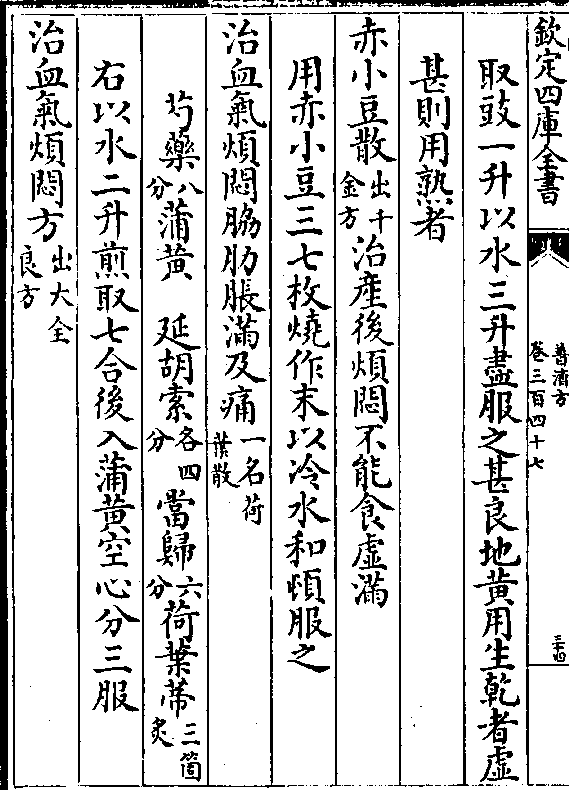 欽定四庫全書
普濟方
卷三百四十七
三十四
取豉一升以水三升盡服之甚良地黄用生乾者虚
甚則用熟者
赤小豆散出千金方治産後煩悶不能食虚滿
用赤小豆三七枚燒作末以冷水和頓服之
治血氣煩悶脇肋脹滿及痛一名荷葉散
芍藥八分蒲黄 延胡索各四分當歸六分荷葉蒂三箇炙
右以水二升煎取七合後入蒲黄空心分三服
治血氣煩悶方出大全良方